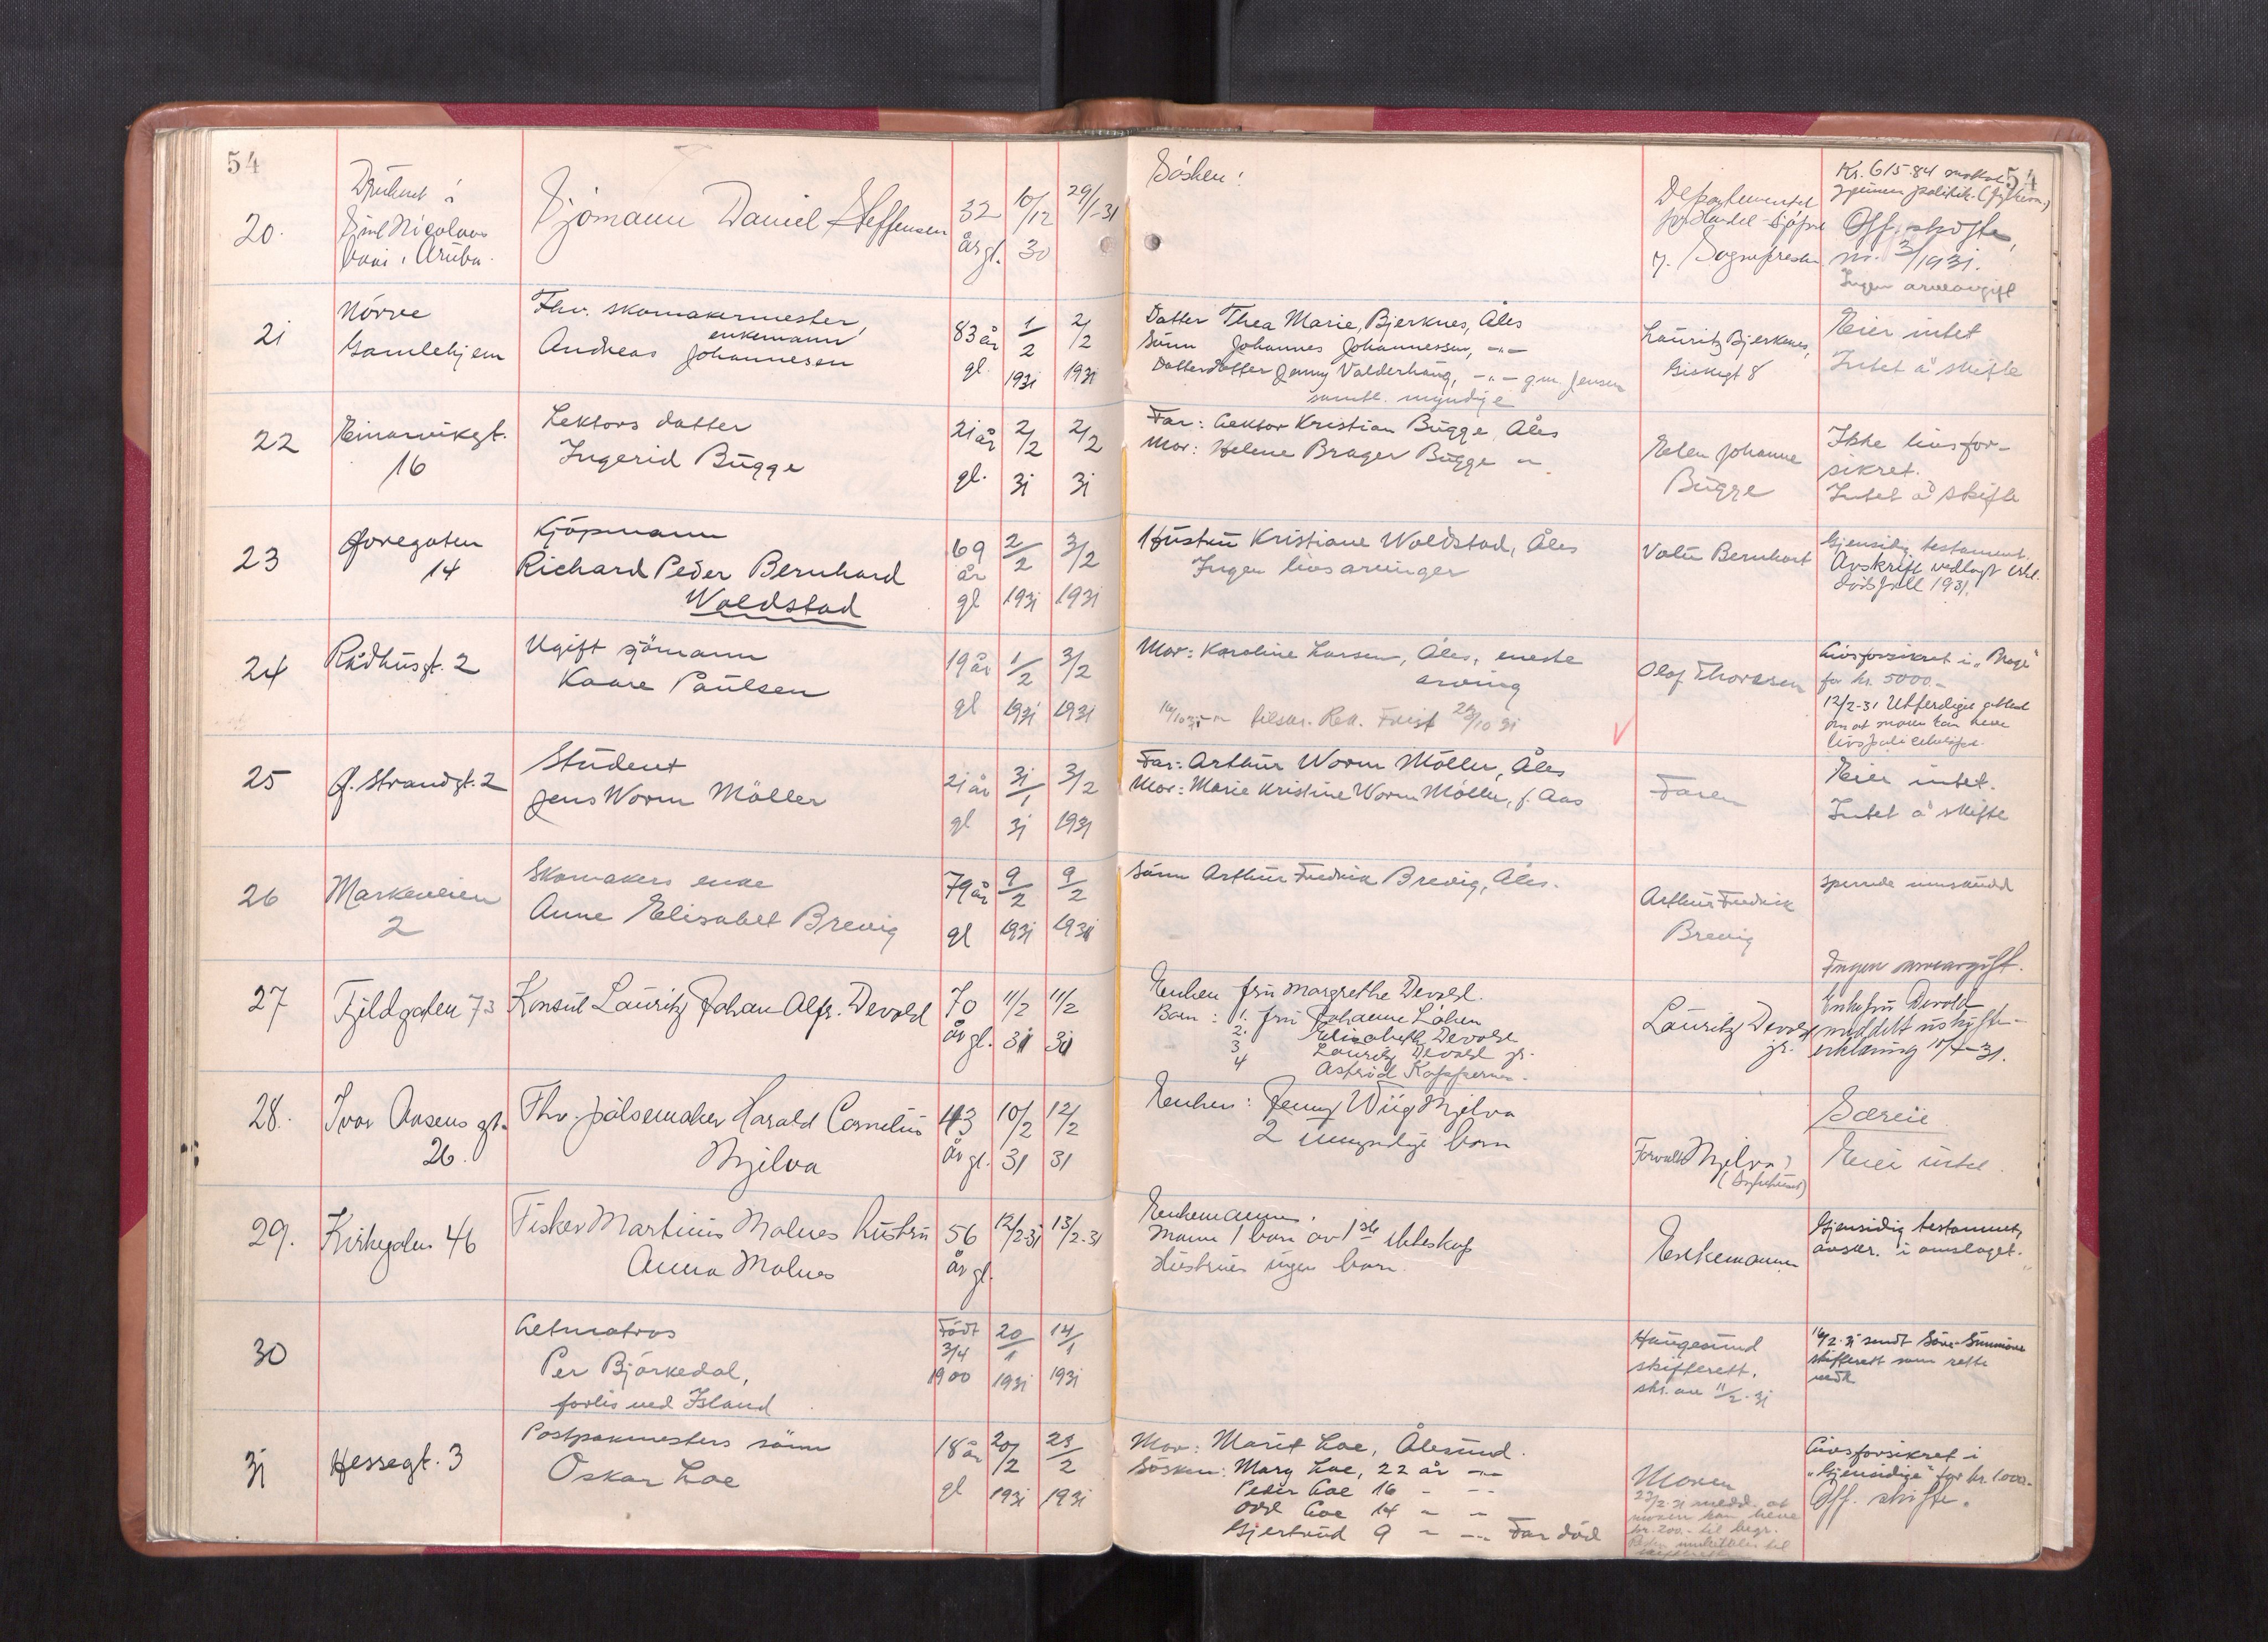 54
54
20.
Druknet i
Sint Nicolaas
Aruba.
Sjömann Daniel Steffensen
32
år gl.
10/12
30
29/1-31
Sösken:
Departementet
for Handel - Sjöfart
Sognepresten
Kr. 615.84
Off. skifte,
nr. 2/1931.
Ingen arveavgift
21
Nörve
Gamlehjem
Fhv. skomakermester,
enkemann
Andreas Johannesen
83 år
gl.
1/2
1931
2/2
1931
Datter Thea Marie Bjerknes, Åles
Sönn Johannes Johannessen, -"-
Datterdatter Jenny Valderhaug, -"- g.m. Jensen
samtl. myndige
Lauritz Bjerknes,
Giskegt 8
Eier intet
Intet å skifte
22
Einarvikgt.
16
Lektors datter
Ingerid Bugge
21 år
gl.
2/2
31
2/2
31
Far: Lektor Kristian Bugge, Åles
Mor: Helene Brager Bugge -"-
Elen Johanne
Bugge
Ikke livsfor-
sikret.
Intet å skifte
23
gaten
14
Kjöpmann
Richard Peder Bernhard
Woldstad
69
år
gl
2/2
1931
3/2
1931
Hustru Kristiane Woldstad, Åles
Ingen livsarvinger
Bernhart
Gjensidig testament.
Avskrift vedlagt
dödsfall 1931.
24
Rådhusgt. 2
Ugift sjömann
Kaare Paulsen
19 år
gl
1/2
1931
3/2
1931
Mor: Karoline Larsen, Åles, eneste
arving
Frist 29/10 31
Olaf Thoresen
Livsforsikret i "Brage"
for kr. 5000.-
12/2-31 Utferdiget attest
om at moren kan heve
25
Strandgt. 2
Student
Jens Worm Möller
21 år
gl
31/1
31
3/2
1931
Far: Arthur Worm Möller, Åles
Mor: Marie Kristine Worm Möller, f. Aas
Faren
Eier intet.
Intet å skifte
26
Markeveien
2
Skomakers enke
Anne Elisabet Brevig
79 år
gl
9/2
1931
9/2
1931
Sönn Arthur Fredrik Brevig, Åles.
Arthur Fredrik
Brevig
Sperrede innskudd
Ingen arveavgift.
27
Fjeldgaten 73
Konsul Lauritz Johan Alfr. Devold
70
år gl.
11/2
31
11/2
31
Enken fru Margrethe Devold.
Barn: 1. fru Johanne Löken
2. Elisabeth Devold
3 Lauritz Devold jr.
4 Astrid Koppernes.
Lauritz Devold
jr.
Enkefru Devold
meddelt uskifte-
erklæring 10/4-31.
28.
Ivar Aasens gt.
26.
Fhv. pölsemaker Harald Cornelius
Mjelva
43
år gl.
10/2
31
12/2
31
Enken: Jenny Wiig Mjelva
2 umyndige barn
Forvalter Mjelva
(Sykehuset)
Særeie
Eier intet.
29.
Kirkegaten 46
Fisker Martinus Molnes hustru
Anna Molnes
56
år gl.
12/2-31
13/2-31
Enkemannen.
Mann 1 barn av 1ste ekteskap
Hustruen ingen barn.
Enkemannen
Gjensidig testament,
avskr. i omslaget.
30
Letmatros
Per Björkedal,
forlis ved Island
Födt
3/4
1900
20/1
1931
14/1
1931
Haugesund
skifterett.
skr. av 11/2-31
16/2-31 sendt Söre-Sunnmöre
skifterett som rette
vedk
31
Hessegt. 3
Postpakmesters sönn
Oskar Loe
18 år
gl
20/2
1931
23/2
1931
Mor: Marit Loe, Ålesund.
Sösken: Mary Loe, 22 år -"-
Peder Loe 16 - -"-
Odd Loe 14 - -"-
Gjertrud 9 - -"- Far död
Moren
23/2-31 medd. at
moren kan heve
kr. 200.- til begr.
Livsforsikret i
"Gjensidige" for kr. 1000.-
Off. skifte.